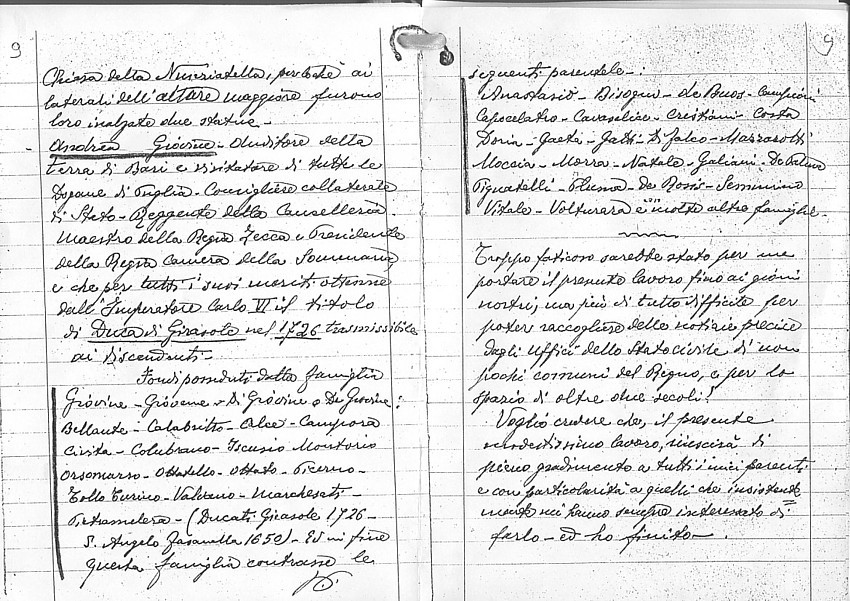 9
Chiesa della Nunziatella, perché ai
laterali dell'altare maggiore furono
loro inalzate due statue -
Andrea Giòvine - Auditore della
terra di Bari e visitatore di tutte le
Dogane di Puglia - Consigliere collaterale
di Stato - Reggente della Cancelleria -
Maestro della Regia Zecca e Presidente
della Regia Camera della Sommaria,
e che per tutti i suoi meriti ottenne
dall'Imperatore Carlo VI il titolo
di Duca di Girasole nel 1726 trasmissibile
ai discendenti -
Fondi posseduti dalla famiglia
Giòvine - Giòvene - Di Giòvine o De Giovine:
Bellante - Calabritto - Campora
Civita - Colubrano - Iscusio Montorio
Orsomarso - Ottatello - Ottato - Picerno -
Tollo Turino - Valvano - Marchesati -
Pietramelera - (Ducati Girasole 1726 -
S. Angelo Fasanella 1650) - Ed in fine
questa famiglia contrasse le
9
seguenti parentele -:
Anastasio - Bisogno - de Buos - Campioni
Capocelatro - Cavaselice - Cristiani - Costa
Doria - Gaeta - Gatti - Di Falco - Mazzarotti
Moccia - Morra - Natale - Galiani - De
Pignatelli - Pluma - De Rosis - Seminino
Vitale - Volturara e molte altre famiglie -
Troppo faticoso sarebbe stato per me
portare il presente lavoro fino ai giorni
nostri; ma più di tutto difficile per
poter raccogliere delle notizie precise
dagli uffici dello Stato civile di non
pochi comuni del Regno, e per lo
spazio di oltre due secoli!
Voglio credere che, il presente
modestissimo lavoro, riuscirà di
pieno gradimento a tutti i miei parenti
e con particolarità a quelli che insistente
mente mi hanno sempre interessato di
farlo - ed ho finito -